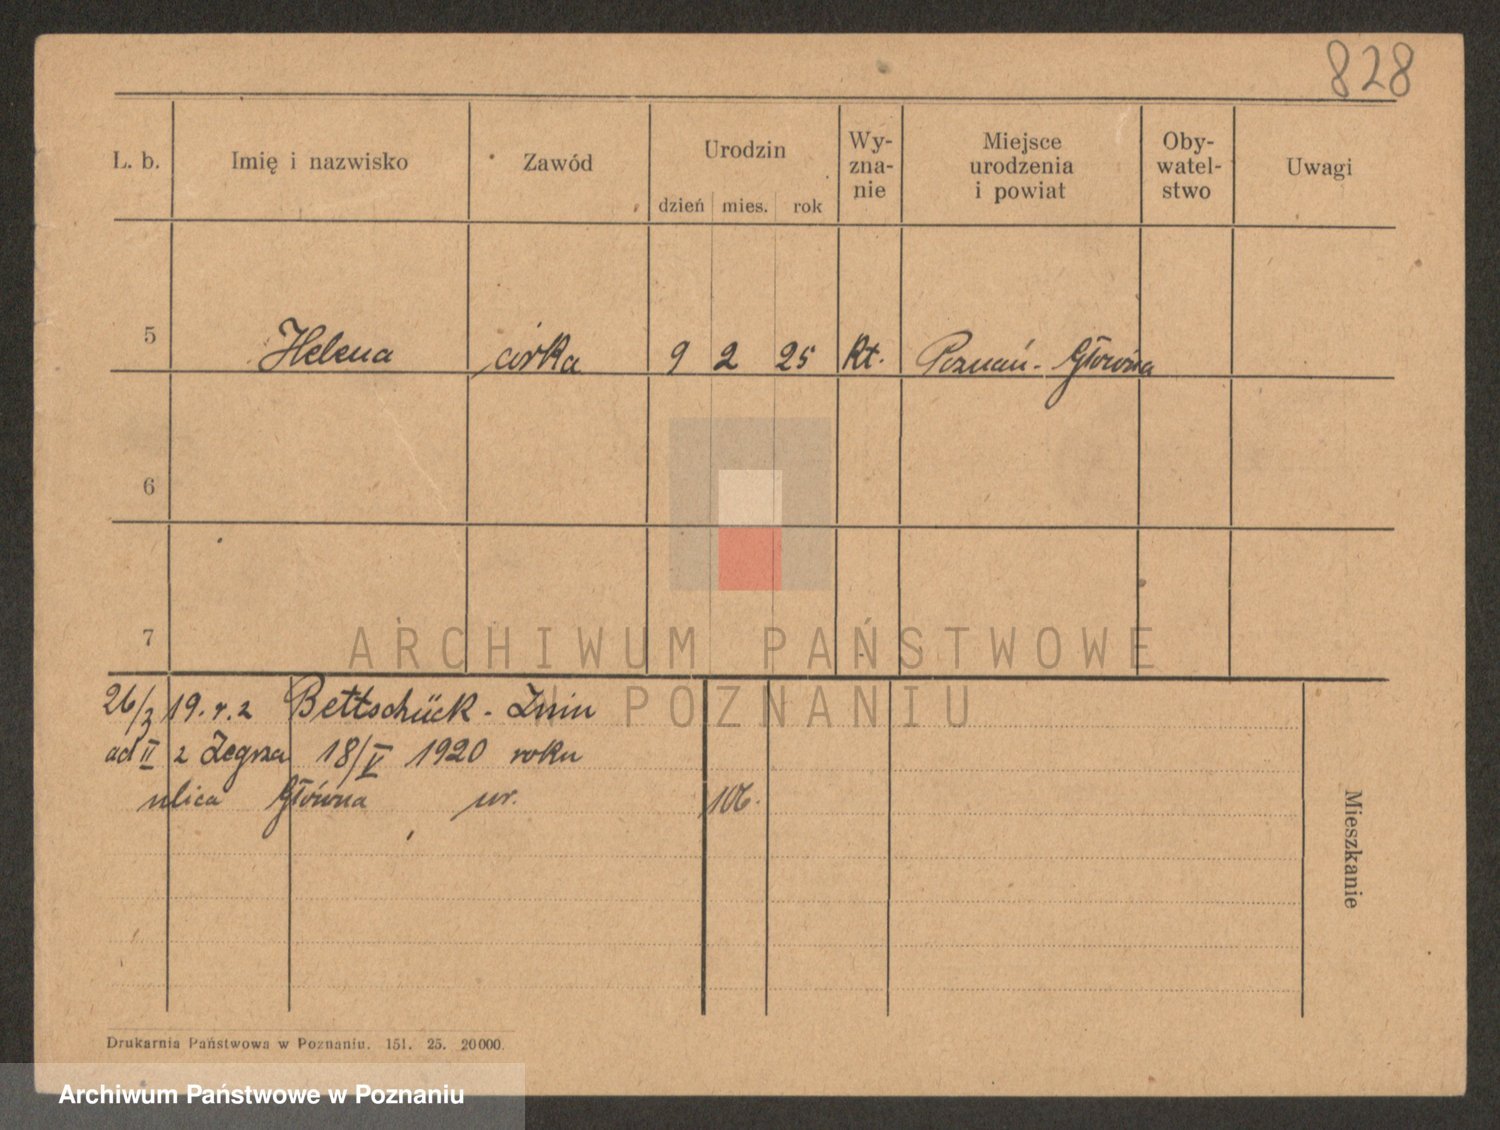 828
L. b. Imię i nazwisko Zawód Urodzin Wy-zna-nie Miejsce urodzenia i powiat Oby-watel-stwo Uwagi
dzień mies. rok
5 Helena córka 9 2 25 kt. Poznań - Główna
6
7
ARCHIWUM PAŃSTWOWE
W POZNANIU
26/3 19. r. z Bettschück - Żnin
ad II z Zegrza 18/V 1920 roku
ulica Główna nr. 106.
Mieszkanie
Drukarnia Państwowa w Poznaniu. 151. 25. 20000.
Archiwum Państwowe w Poznaniu